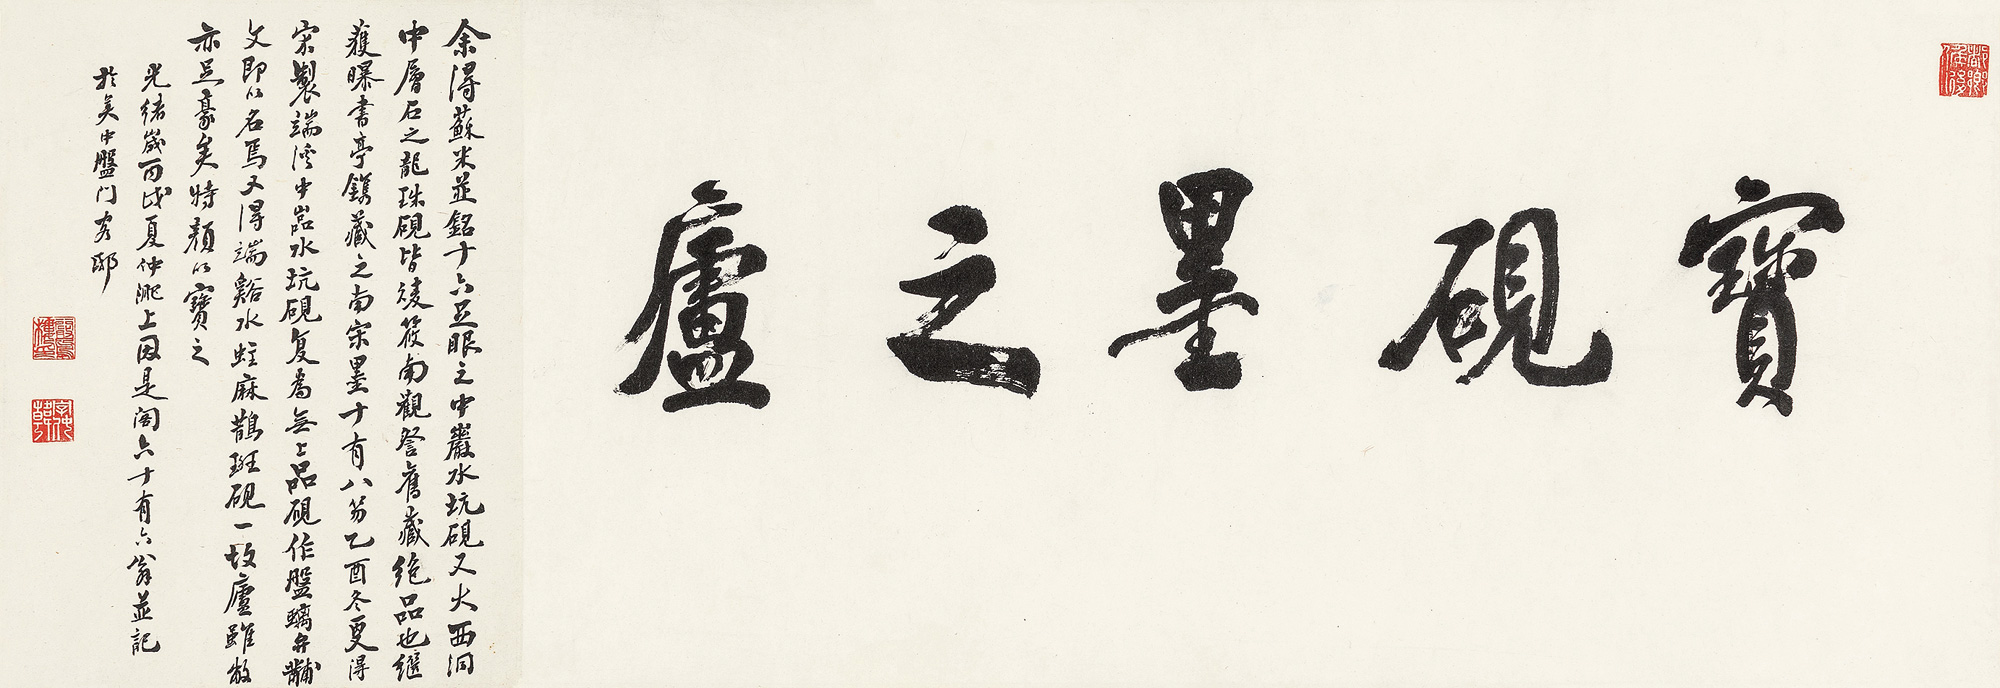 寶硯墨之廬
余得蘇米並銘十六五眼之中巖水坑硯又大西洞
中層石之龍珠硯皆凌筱南觀詧舊藏絕品也繼
獲曝書亭鐫藏之南宋墨十有八笏乙酉冬夏得
宋製端溪中嵓水坑硯复爲無上品硯作盤螭弁黼
文即以名焉又得端谿水蛀麻鵲斑硯一故廬雖敝
亦足豪矣特顏以寶之
光緒歲丙戌夏仲滬上因是閣六十有六翁並記
於吳中盤門客邸